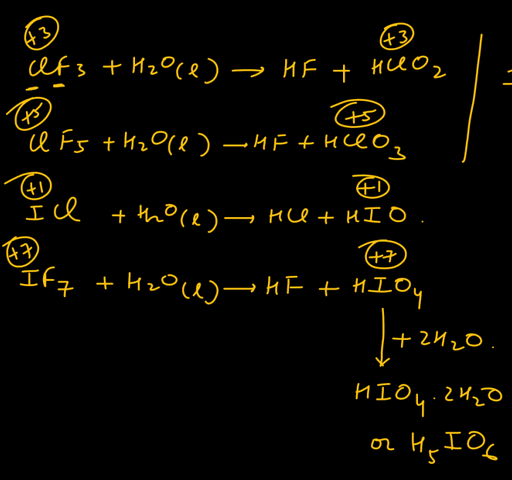 +3 +3
ClF3 + H2O(l) → HF + HClO2
+5 +5
ClF5 + H2O(l) → HF + HClO3
+1 +1
ICl + H2O(l) → HCl + HIO.
+7 +7
IF7 + H2O(l) → HF + HIO4
+ 2H2O.
HIO4.2H2O
or H5IO6